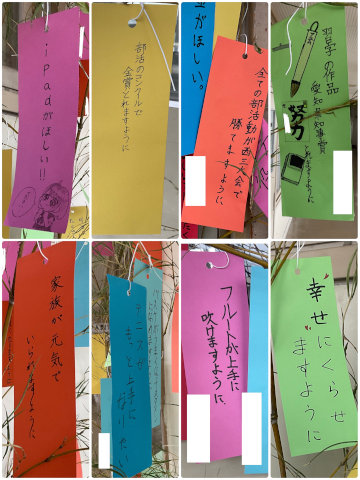 iPadがほしい!!
部活のコンクールで
金賞とれますように
がほしい。
全ての部活動が西三大会で
勝てますように
習字の作品
愛知県知事賞
とれますように
努力
家族が元気で
いられますように
テニスが
もっと上手に
なりたい
フルートが上手に
吹けますように
幸せにくらせ
ますように